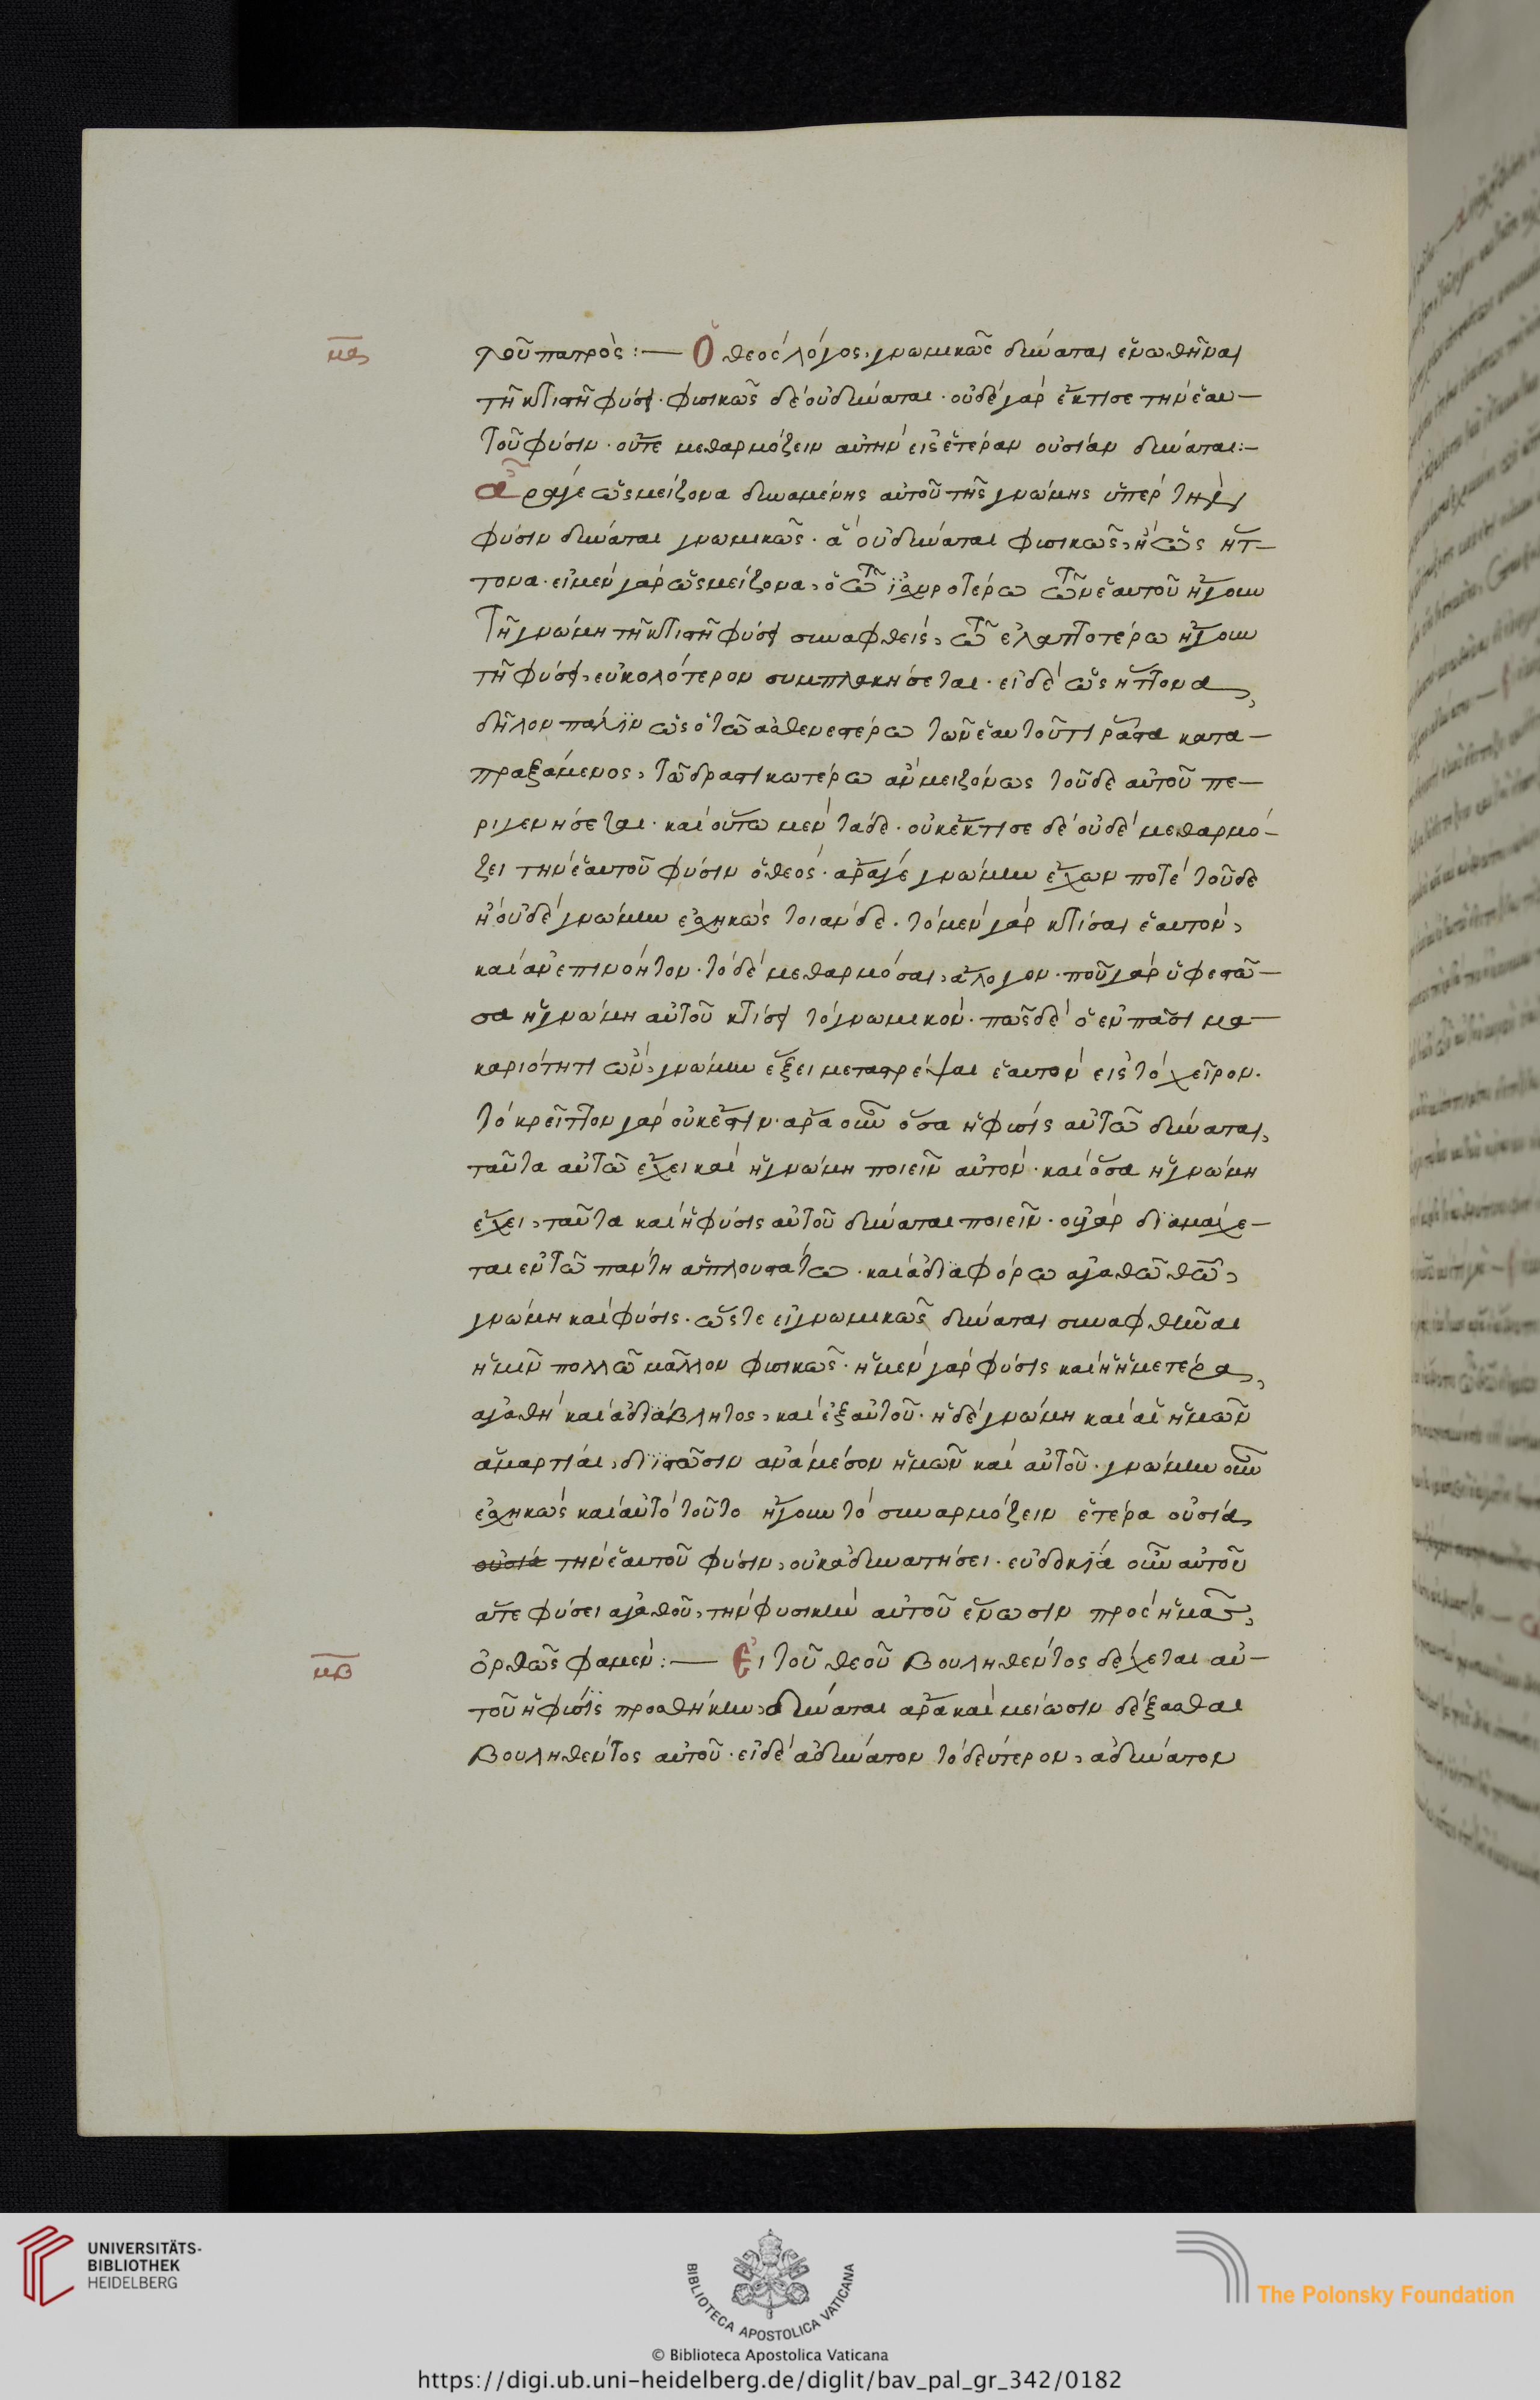 μα
τοῦ πατρός :— Ὁ θεός λόγος, γνωμικῶς δύναται ἑνωθῆναι
τῆ κτιστῆ φύσει· φυσικῶς δέ οὐ δύναται· οὐδέ γάρ ἔκτισε τήν ἑαυ—
τοῦ φύσιν· οὔτε μεθαρμόζειν αὐτήν εἰς ἑτέραν οὐσίαν δύναται:—
Ἆρά γε ὡς μείζονα δυναμένης αὐτοῦ τῆς γνώμης ὑπέρ τήν
φύσιν δύναται γνωμικῶς· ἅ οὐ δύναται φυσικῶς, ἤ ὡς ἥτ—
τονα· εἰ μέν γάρ ὡς μείζονα, ὁ τῶ ἰσχυροτέρω τῶν ἑαυτοῦ ἤγουν
τῆ γνώμη τῆ κτιστῆ φύσει συναφθείς, τῶ ἐλαττοτέρω ἤγουν
τῆ φύσει, εὐκολότερον συμπλακήσεται· εἰ δέ ὡς ἥττονα,
δῆλον πάλιν ὡς ὁ τῶ ἀσθενεστέρω τῶν ἑαυτοῦ τι ῥᾶστα κατα—
πραξάμενος, τῶ δραστικωτέρω ἄν μειζόνως τοῦδε αὐτοῦ πε—
ριγενήσεται· καί οὕτω μέν τάδε· οὐκ ἔκτισε δέ οὐδέ μεθαρμό—
ζει τήν ἑαυτοῦ φύσιν ὁ θεός· ἆρά γέ γνώμην ἔχων ποτέ τοῦδε
ἤ οὐδέ γνώμην ἐσχηκώς τοιάνδε· τό μέν γάρ κτίσαι ἑαυτόν,
καί ἀνεπινόητον· τό δέ μεθαρμόσαι, ἄλογον· ποῦ γάρ ὑφεστῶ—
σα ἡ γνώμη αὐτοῦ κτίσει τό γνωμικόν· πῶς δέ ὁ ἐν πάσι μα—
καριότητι ὤν, γνώμην ἕξει μεταστρέψαι ἑαυτόν εἰς τό χεῖρον·
τό κρεῖττον γάρ οὐκ ἔστιν· ἆρα οὖν ὅσα ἡ φύσις αὐτῶ δύναται,
ταῦτα αὐτῶ ἔχει καί ἡ γνώμη ποιεῖν αὐτόν· καί ὅσα ἡ γνώμη
ἔχει, ταῦτα καί ἡ φύσις αὐτοῦ δύναται ποιεῖν· οὐ γάρ διαμάχε—
ται ἐν τῶ πάντη ἁπλουστάτω· καί ἀδιαφόρω ἀγαθῶ θῶ,
γνώμη καί φύσις· ὥστε εἰ γνωμικῶς δύναται συναφθῆναι
ἡμῖν πολλῶ μᾶλλον φυσικῶς· ἡ μέν γάρ φύσις καί ἡ ἡμετέρα,
ἀγαθή καί ἀδιάβλητος, καί ἐξ αὐτοῦ· ἡ δέ γνώμη καί αἱ ἡμῶν
ἁμαρτίαι, διϊστῶσιν ἀνάμεσον ἡμῶν καί αὐτοῦ· γνώμην οὖν
ἐσχηκώς καί αὐτό τοῦτο ἤγουν τό συναρμόζειν ἑτέρα οὐσία,
οὐσία τήν ἑαυτοῦ φύσιν, οὐκ ἀδυνατήσει· εὐδοκία οὖν αὐτοῦ
ἅτε φύσει ἀγαθοῦ, τήν φυσικήν αὐτοῦ ἕνωσιν πρός ἡμᾶς,
ὀρθῶς φαμέν :— Εἰ τοῦ θεοῦ βουληθέντος δέχεται αὐ—
μβ
τοῦ ἡ φύσις προσθήκην, δύναται ἆρα καί μείωσιν δέξασθαι
βουληθέντος αὐτοῦ· εἰ δέ ἀδύνατον τό δεύτερον, ἀδύνατον
UNIVERSITÄTS-
BIBLIOTHEK
HEIDELBERG
BIBLIOTECA APOSTOLICA VATICANA
The Polonsky Foundation
© Biblioteca Apostolica Vaticana
https://digi.ub.uni-heidelberg.de/diglit/bav_pal_gr_342/0182